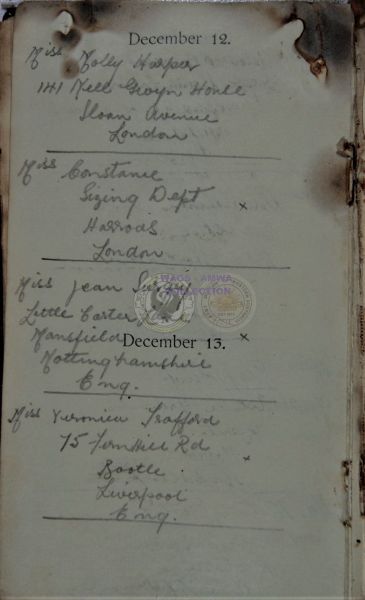 December 12.
Miss Molly Harper
141 Nell Gwyn House
Sloan Avenue
London
Miss Constance
Sizing Dept x
Harrods
London
Miss Jean
Little Carter
WAGS - AMWA
COLLECTION
Mansfield x
December 13.
Nottinghamshire
Eng.
Miss Veronica Trafford
75 Fernhill Rd
Bootle x
Liverpool
Eng.